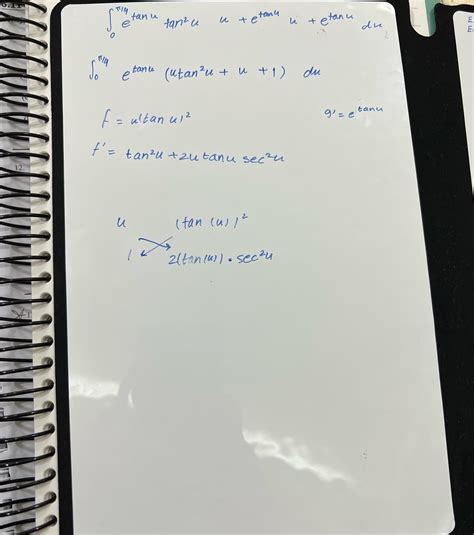 ∫₀^π/4 e^tanu tan²u u + e^tanu u + e^tanu du
∫₀^π/4 e^tanu (utan²u + u + 1) du
f = u(tan u)² g' = e^tanu
f' = tan²u + 2u tanu sec²u
u (tan (u))²
1 2(tan(u)) • sec²u